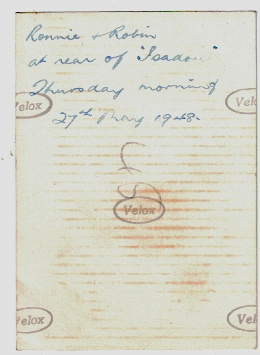 Ronnie & Robin
at rear of "Isadou"
Thursday morning
27th May 1948.
Velox
Velox
Velox
Velox
Velox